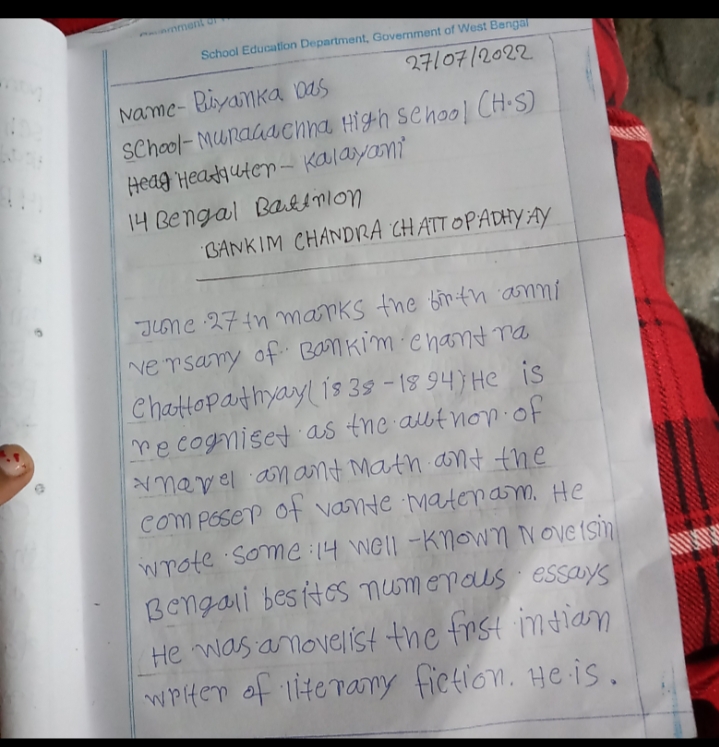 School Education Department, Government of West Bengal
27/07/2022
Name- Priyanka Das
School- Muragachha High School (H.S)
Heag Headquter- Kalayani
14 Bengal
BANKIM CHANDRA CHATTOPADHYAY
June 27th marks the birth anni
versary of Bankim chandra
Chattopathyay(1838-1894) He is
recogniset as the author of
novel anant Math ant the
composer of vante Materam. He
wrote some 14 well-known Novelsin
Bengali besites numerous essays
He was anovelist the frist intian
writer of literary fiction. He is.